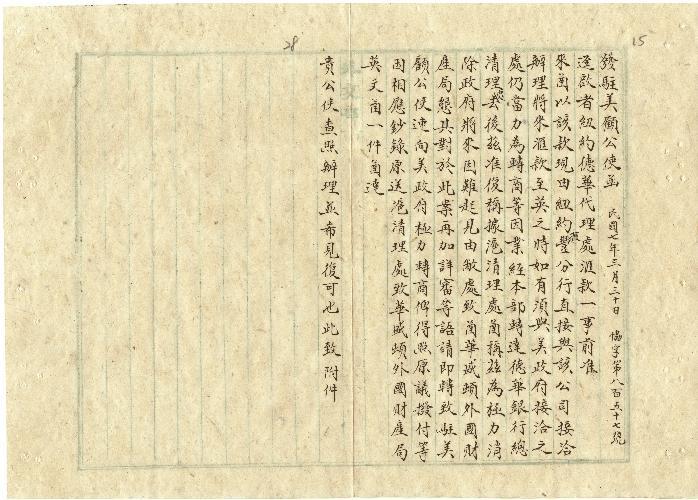 發駐美顧公使函 民國七年三月三十日 協字第八百五十七號
逕啟者紐約德華代理處滙款一事前准
來函以該款現由紐約滙豐分行直接與該公司接洽
辦理將來滙款至英之時如有須與美政府接洽之
處仍當力為轉商等因業經本部轉達德華銀行總
清理處去後茲准復稱據滬清理處函稱茲為極力消
除政府將來困難起見由敝處致函華盛頓外國財
產局懇其對於此案再加詳審等語請即轉致駐美
顧公使速向美政府極力轉商俾得照原議撥付等
因相應鈔錄原送滬清理處致華盛頓外國財產局
英文函一件函達
貴公使查照辦理並希見復可也此致附件
28
15